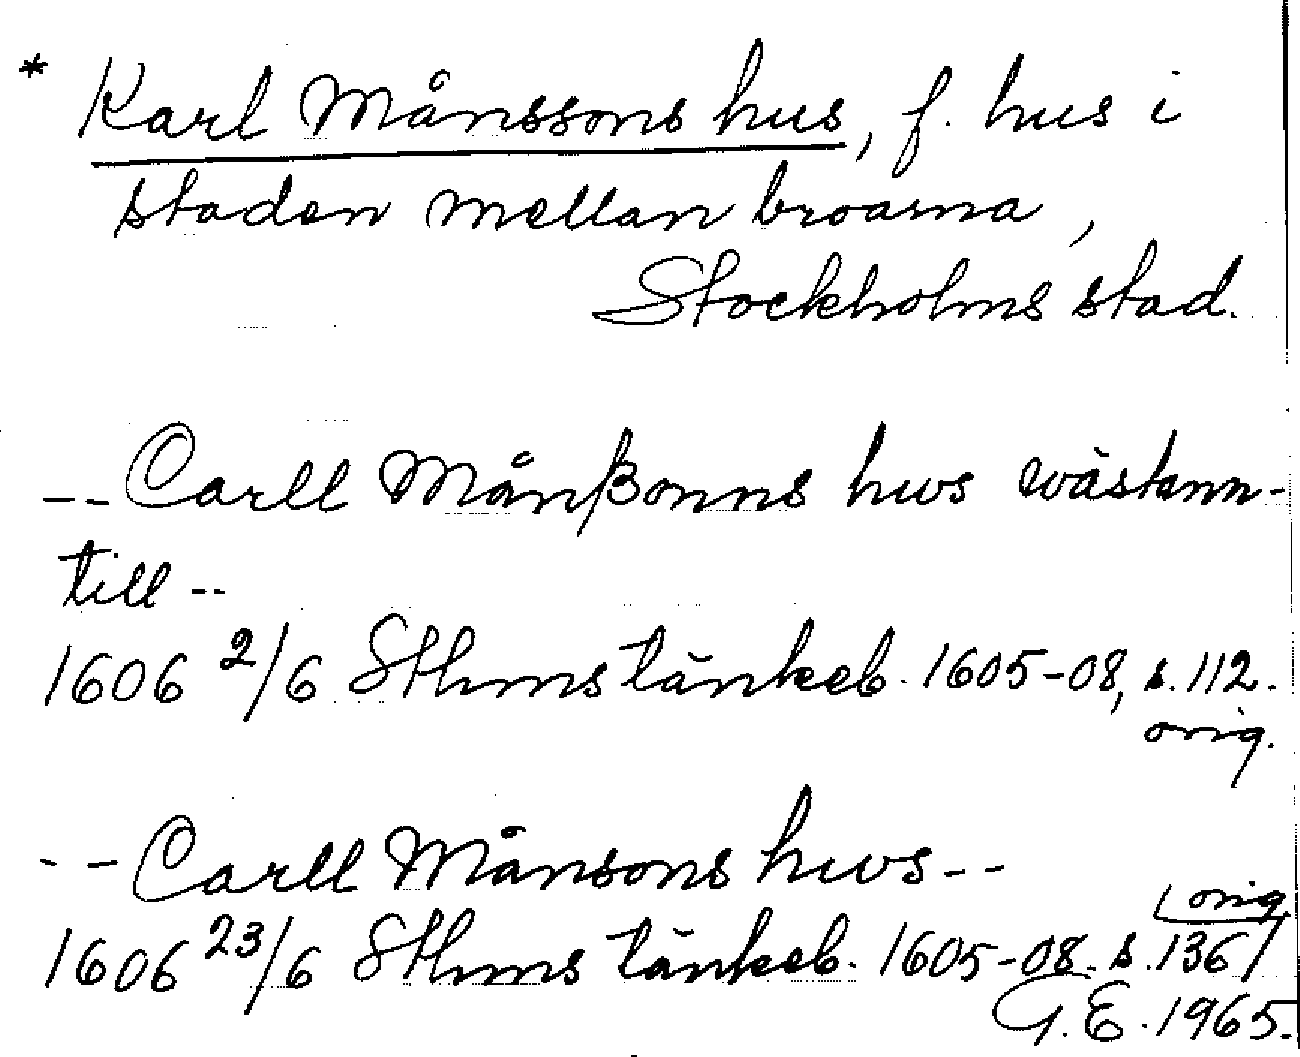 * Karl Månssons hus, f. hus i
staden mellan broarna,
Stockholms stad.
-- Carll Månßonns hws wästenn-
till --
1606 2/6 Sthms tänkeb. 1605-08, s. 112.
orig.
-- Carll Månsons hws --
orig
1606 23/6 Sthms tänkeb. 1605-08. s. 136
G.E. 1965.